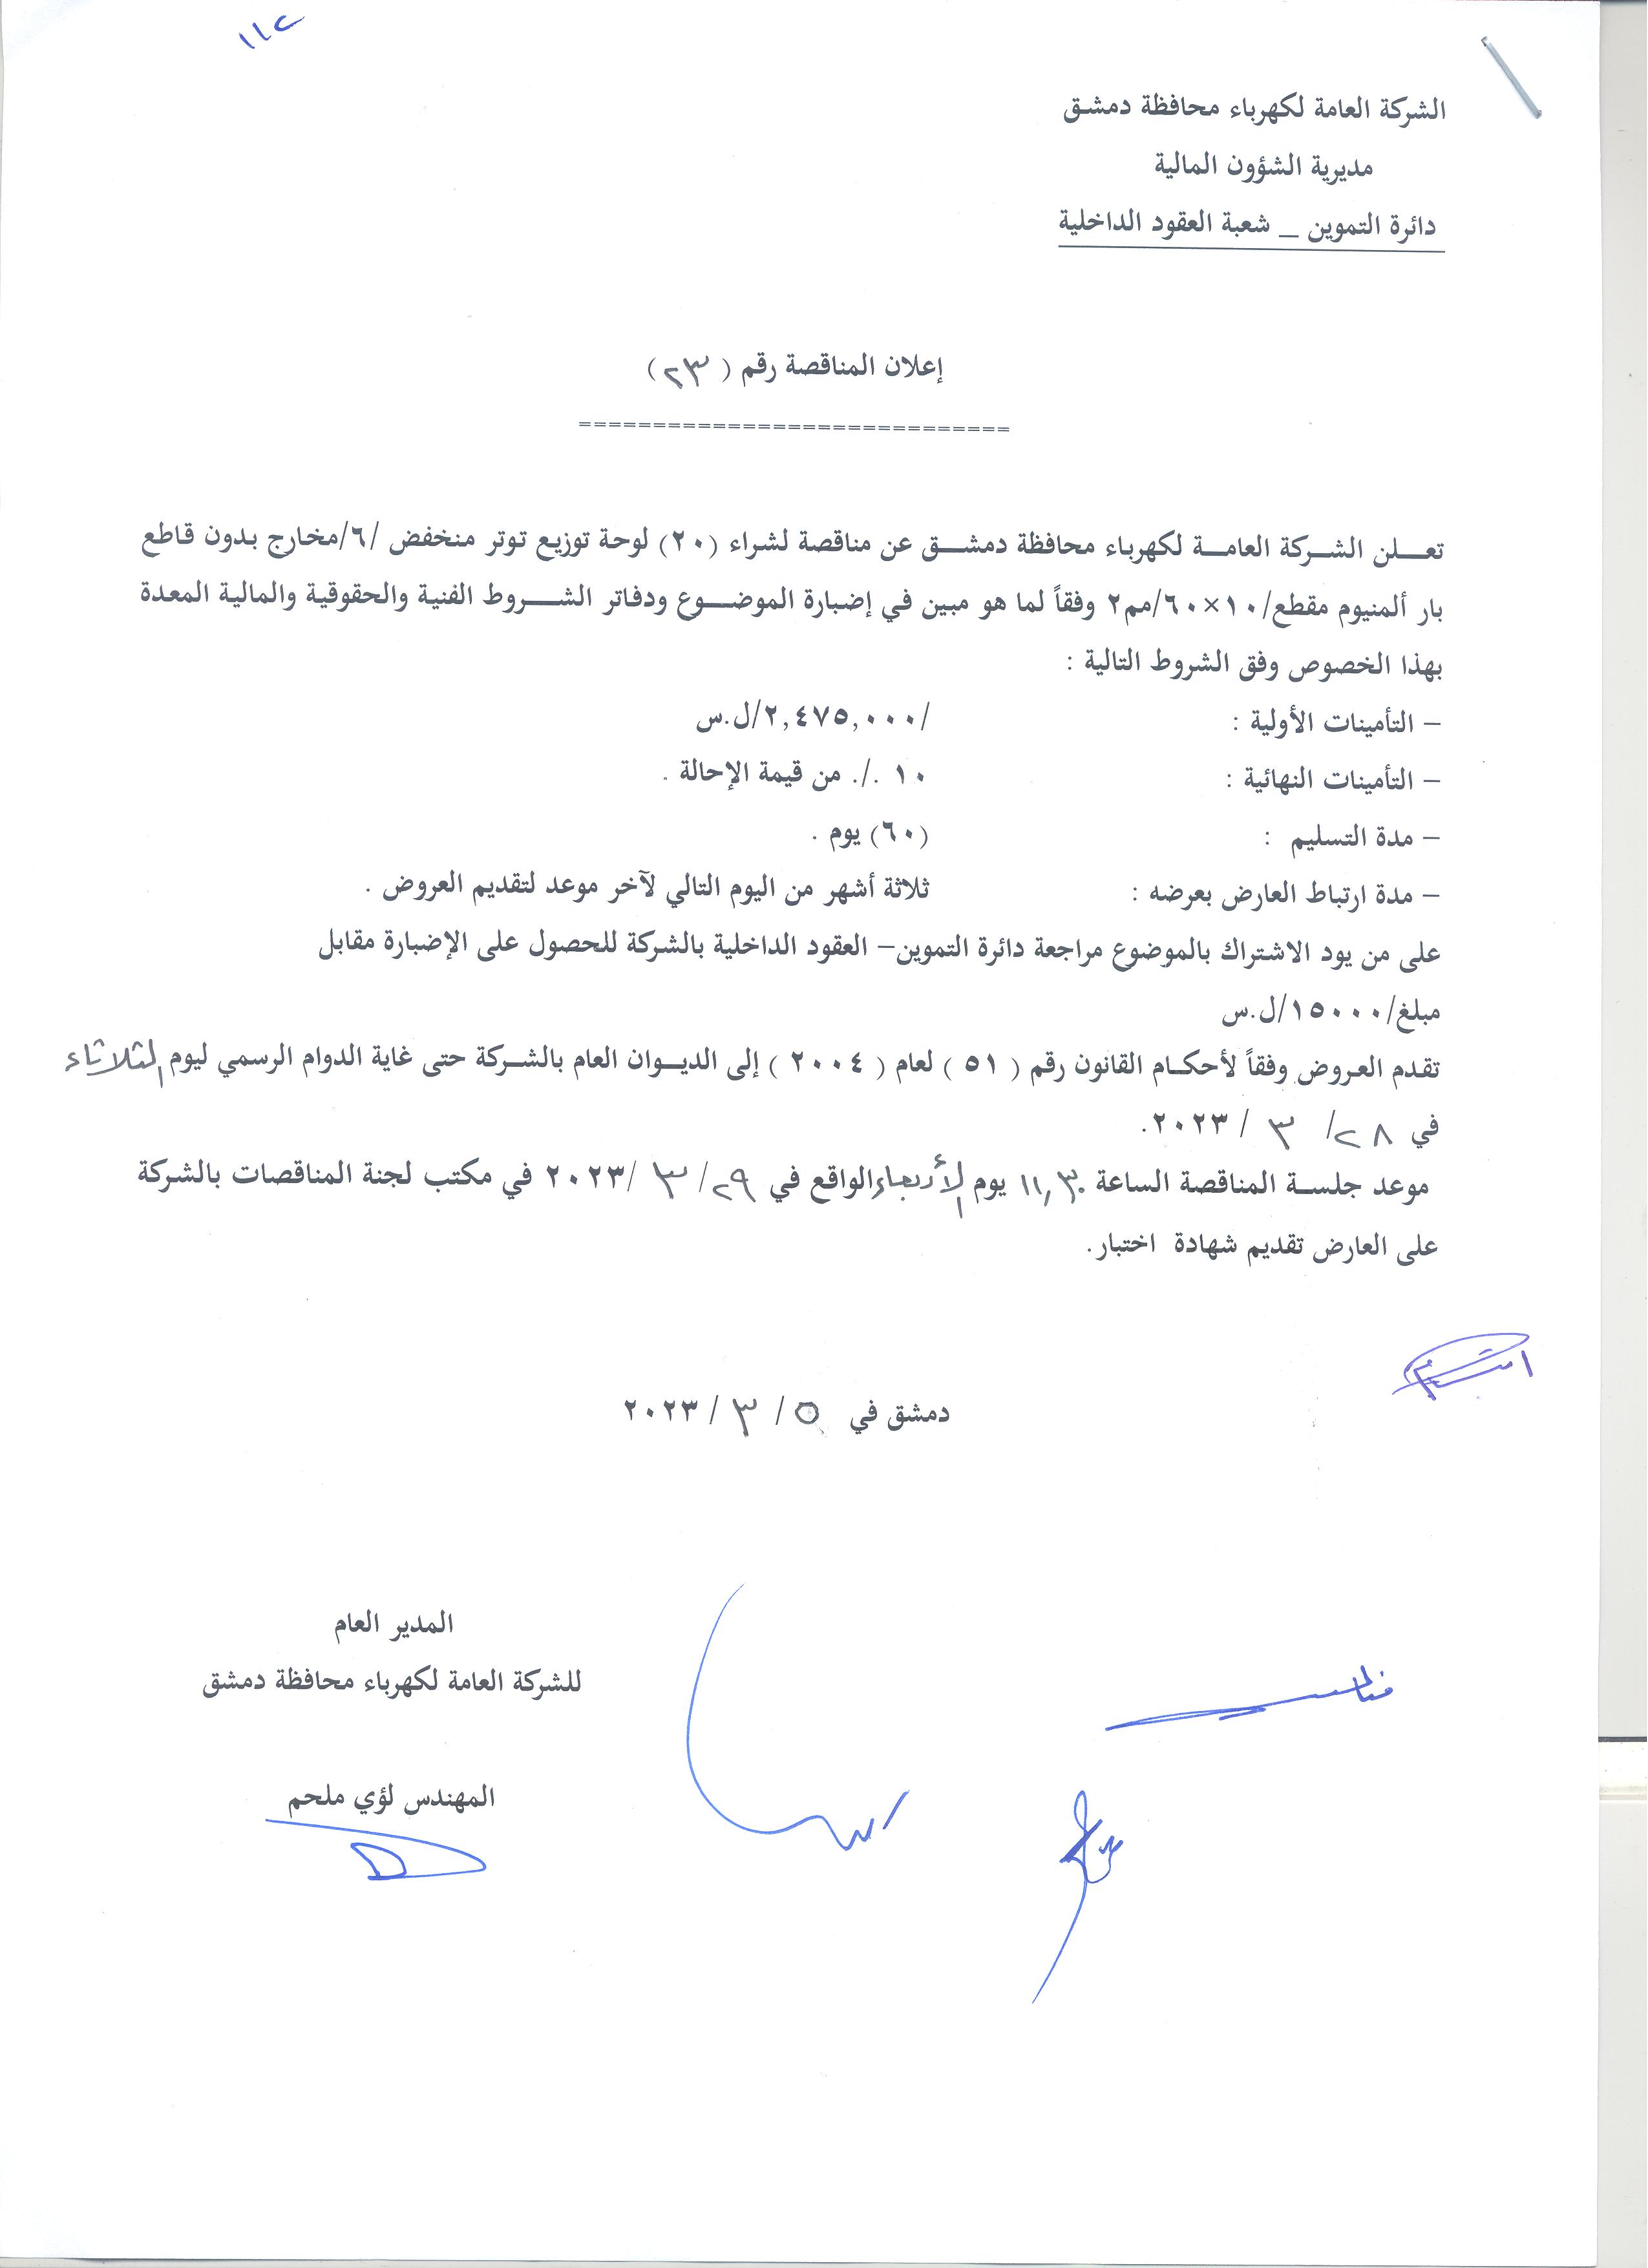 ١١٢
الشركة العامة لكهرباء محافظة دمشق
مديرية الشؤون المالية
دائرة التموين _ شعبة العقود الداخلية
إعلان المناقصة رقم ( ٢٣ )
=============================
تعلن الشركة العامة لكهرباء محافظة دمشق عن مناقصة لشراء (٢٠) لوحة توزيع توتر منخفض /٦/مخارج بدون قاطع
بار ألمنيوم مقطع/١٠×٦٠/مم٢ وفقاً لما هو مبين في إضبارة الموضوع ودفاتر الشروط الفنية والحقوقية والمالية المعدة
بهذا الخصوص وفق الشروط التالية :
– التأمينات الأولية : /٢,٤٧٥,٠٠٠/ل.س
– التأمينات النهائية : ١٠ ./. من قيمة الإحالة .
– مدة التسليم : (٦٠) يوم .
– مدة ارتباط العارض بعرضه : ثلاثة أشهر من اليوم التالي لآخر موعد لتقديم العروض .
على من يود الاشتراك بالموضوع مراجعة دائرة التموين– العقود الداخلية بالشركة للحصول على الإضبارة مقابل
مبلغ/١٥٠٠٠/ل.س
تقدم العروض وفقاً لأحكام القانون رقم ( ٥١ ) لعام ( ٢٠٠٤ ) إلى الديوان العام بالشركة حتى غاية الدوام الرسمي ليوم الثلاثاء
في ٢٨ / ٣ / ٢٠٢٣.
موعد جلسة المناقصة الساعة ١١,٣٠ يوم الأربعاء الواقع في ٢٩ / ٣ /٢٠٢٣ في مكتب لجنة المناقصات بالشركة
على العارض تقديم شهادة اختبار.
دمشق في ٥ / ٣ / ٢٠٢٣
المدير العام
للشركة العامة لكهرباء محافظة دمشق
المهندس لؤي ملحم